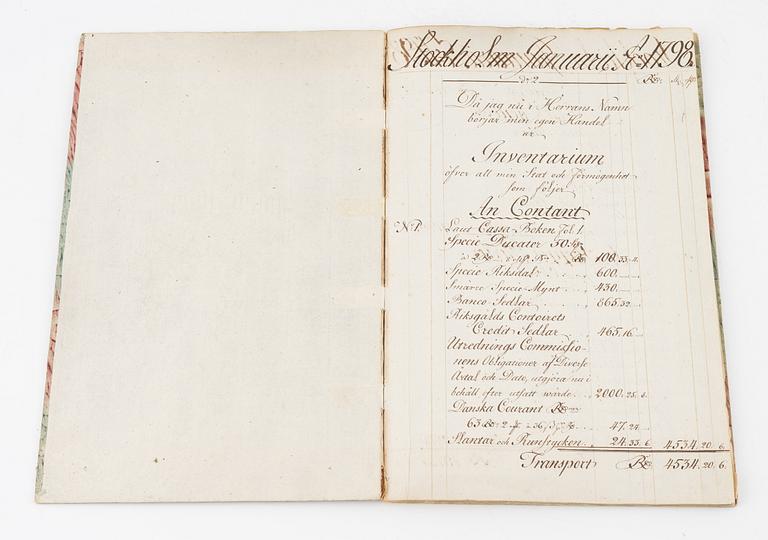 Stockholm Januarii A:o 1798.
d: 2
Då jag nu i Herrans Namn
börjar min egen Handel
är
Inventarium
öfver all min Stat och förmögenhet
som följer
An Contant
N:o 1. Laut Cassa Boken Fol. 1.
Specie Ducater 50 St
100. 33. 4.
Specie Riksdal. 600.
Smärre Specie Mynt 430.
Banco Sedlar 865. 32.
Riksgälds Contoirets
Credit Sedlar 465. 16.
Utrednings Commissio-
nens Obligationer af Diverse
Artal och Dato, utgjöra nu i
behåll efter utsatt wärde 2000. 25. 8.
Danska Courant
63 47. 24.
Slantar och Runstycken 24. 33. 6. 4534. 20. 6.
Transport 4534. 20. 6.